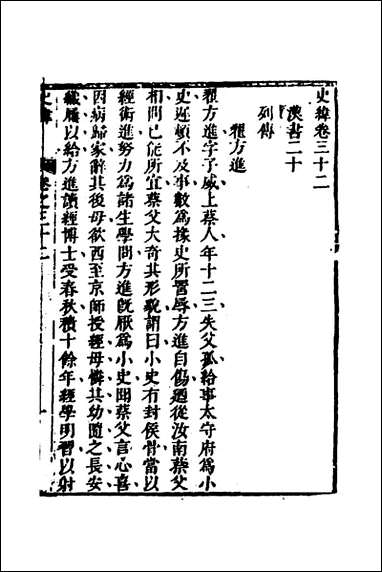 史緯卷三十二
漢書二十
列傳
翟方進
翟方進字子威上蔡人年十二三失父孤給事太守府為小
史遲頓不及事數為掾史所詈辱方進自傷廼從汝南蔡父
相問已能所宜蔡父大奇其形貌謂曰小史有封侯骨當以
經術進努力為諸生學問方進旣厭為小史聞蔡父言心喜
因病歸家辭其後母欲西至京師授經母憐其幼隨之長安
織屨以給方進讀經博士受春秋積十餘年經學明習以射
史緯
卷之三十二
一